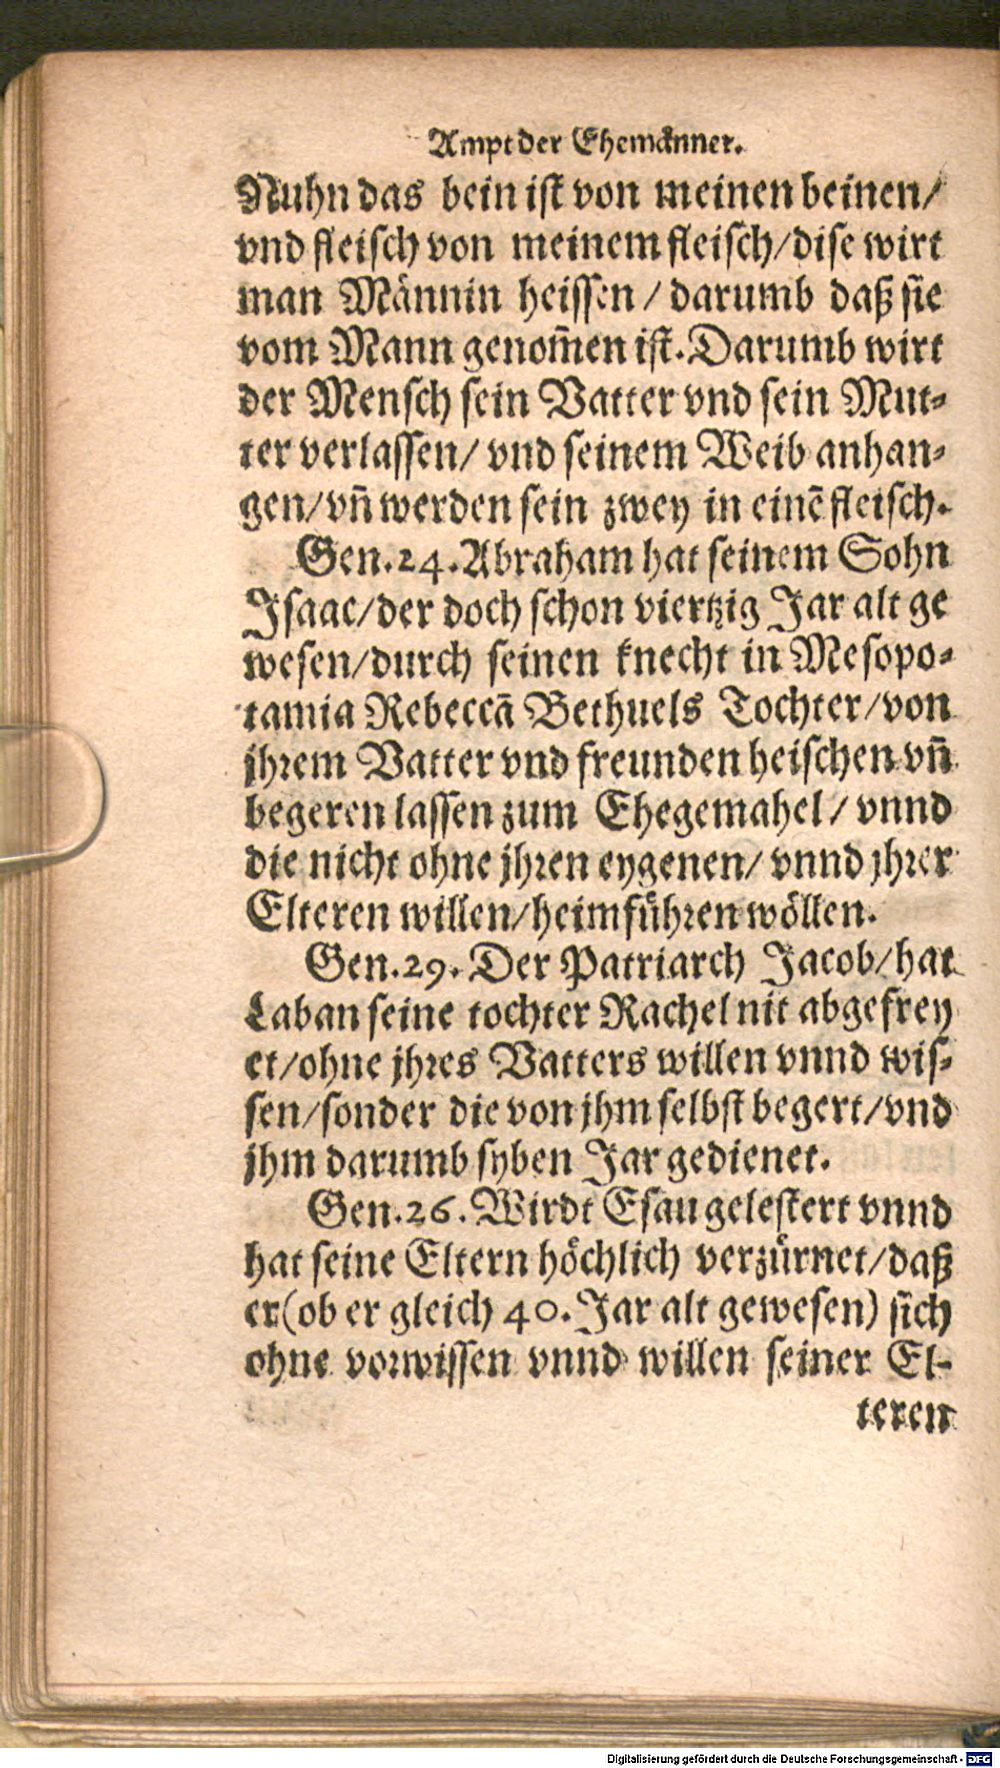 Ampt der Ehemänner.
Nuhn das bein ist von meinen beinen/
vnd fleisch von meinem fleisch/dise wirt
man Männin heissen / darumb daß sie
vom Mann genom̃en ist. Darumb wirt
der Mensch sein Vatter vnd sein Mut⸗
ter verlassen/ vnd seinem Weib anhan⸗
gen/vñ werden sein zwey in einē fleisch.
Gen.24. Abraham hat seinem Sohn
Isaac/der doch schon viertzig Jar alt ge
wesen/durch seinen knecht in Mesopo⸗
tamia Rebeccā Bethuels Tochter/von
jhrem Vatter vnd freunden heischen vñ
begeren lassen zum Ehegemahel/ vnnd
die nicht ohne jhren eygenen/ vnnd jhrer
Elteren willen/heimführen wöllen.
Gen.29. Der Patriarch Jacob/hat
Laban seine tochter Rachel nit abgefrey
et/ohne jhres Vatters willen vnnd wis⸗
sen/sonder die von jhm selbst begert/vnd
jhm darumb syben Jar gedienet.
Gen.26. Wirdt Esau gelestert vnnd
hat seine Eltern höchlich verzürnet/daß
er(ob er gleich 40. Jar alt gewesen) sich
ohne vorwissen vnnd willen seiner El-
teren
Digitalisierung gefördert durch die Deutsche Forschungsgemeinschaft - DFG